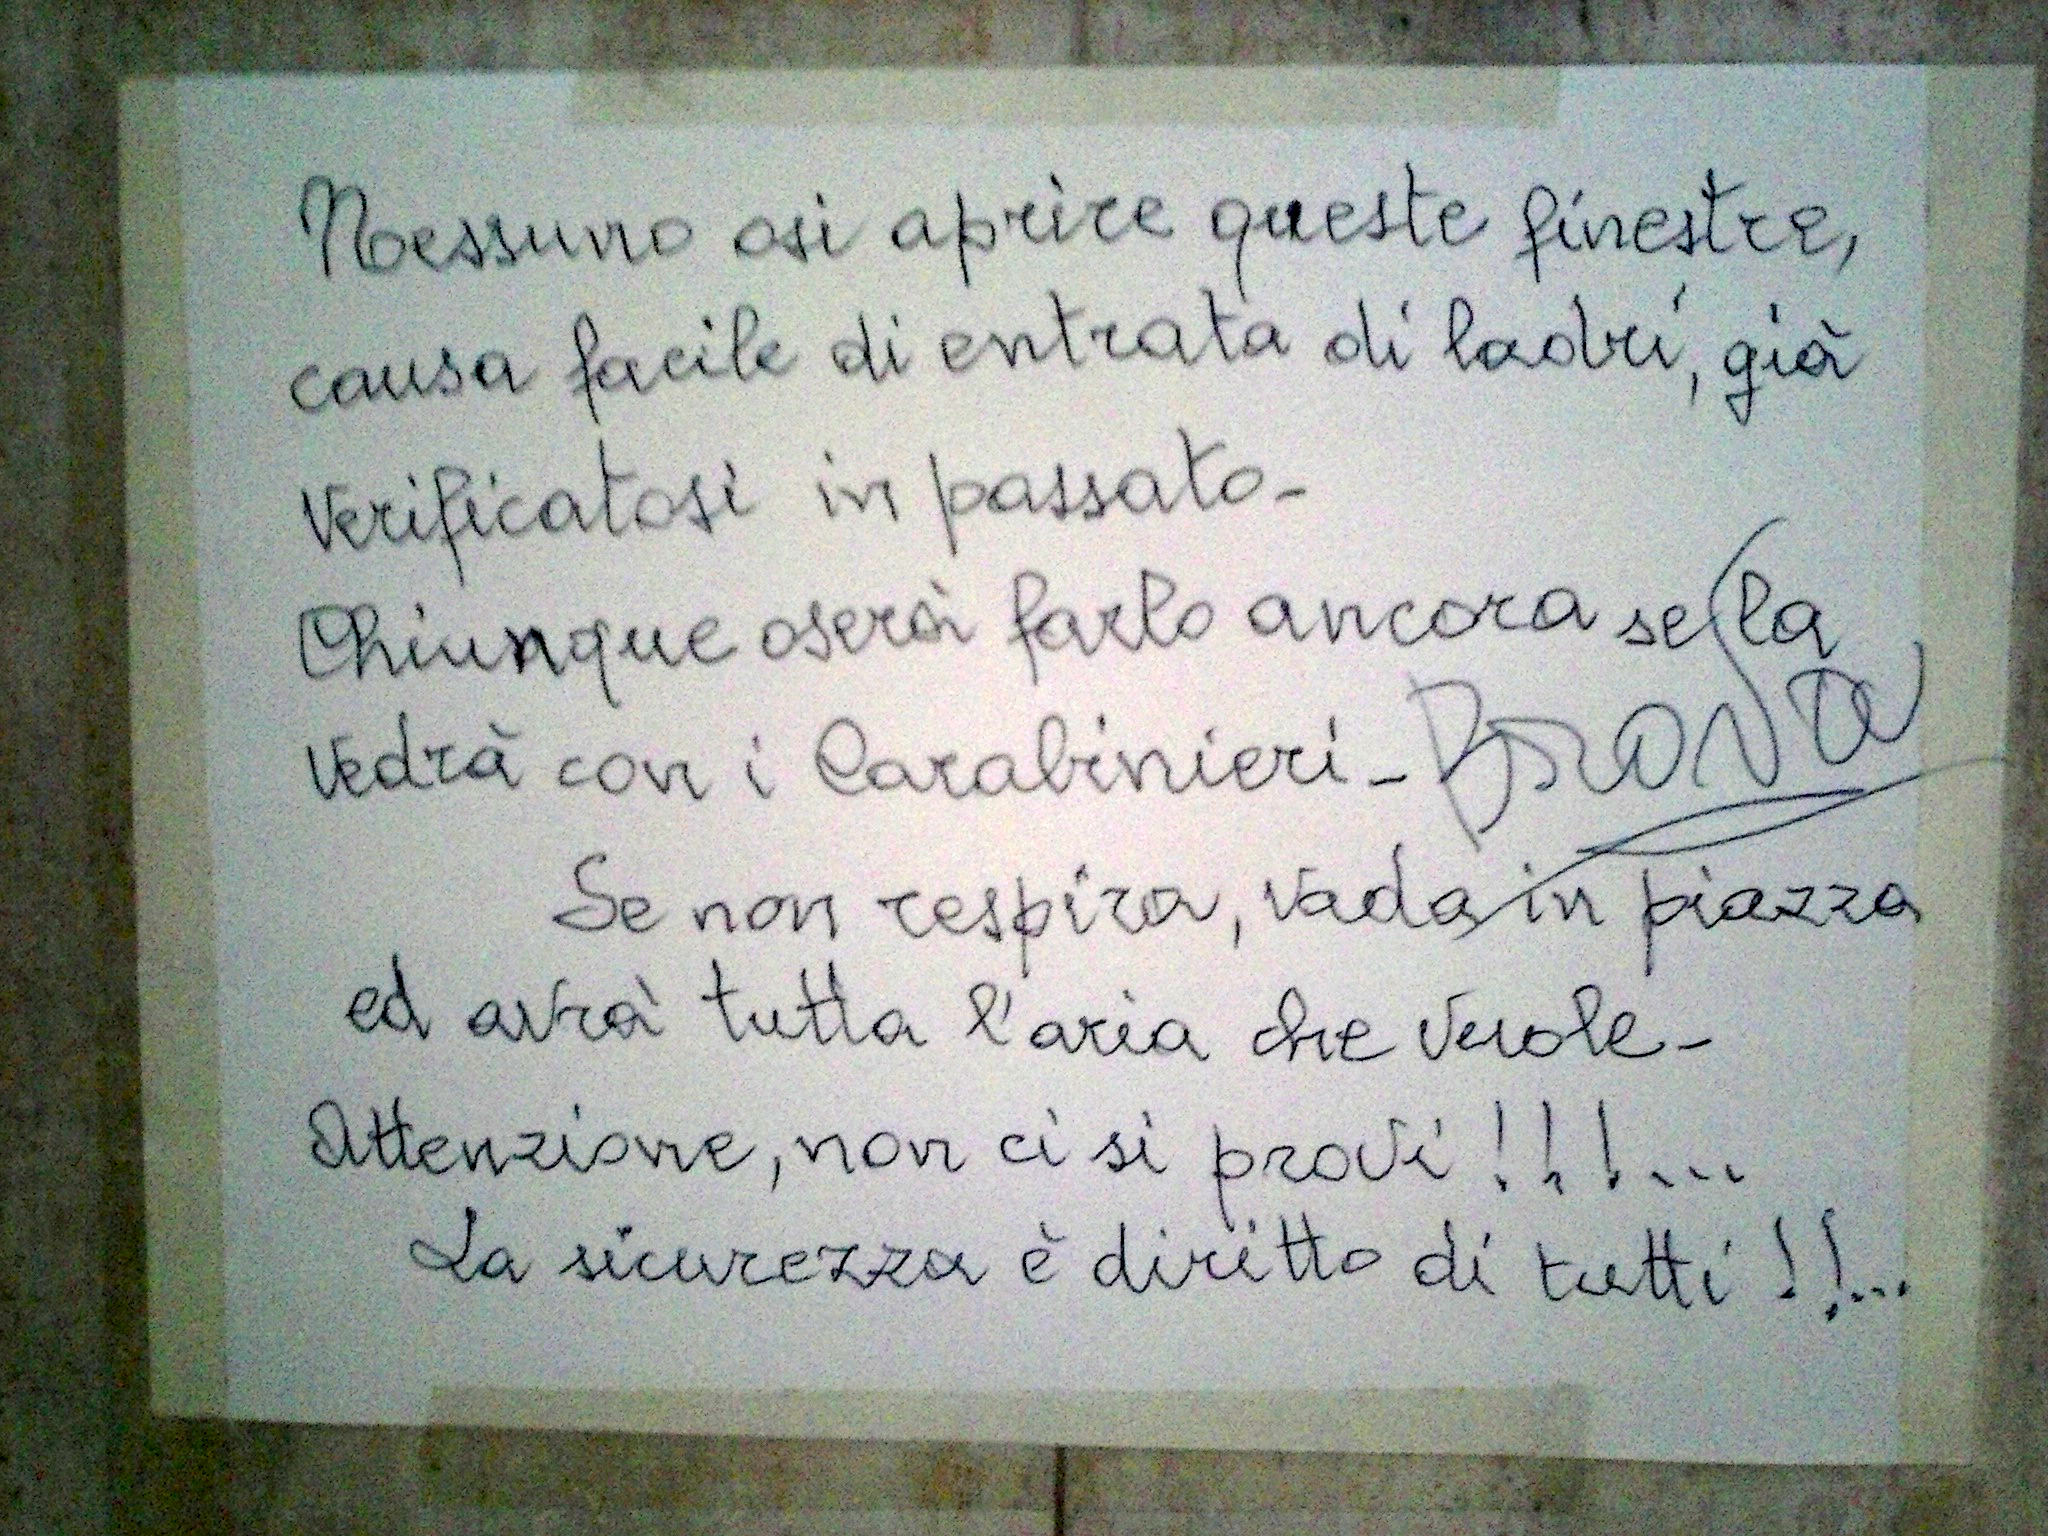 Nessuno osi aprire queste finestre,
causa facile di entrata di ladri, già
verificatosi in passato-
Chiunque oserà farlo ancora se la
vedrà con i Carabinieri- BRAVA
Se non respira, vada in piazza
ed avrà tutta l'aria che vuole-
Attenzione, non ci si provi!!!...
La sicurezza è diritto di tutti!!...